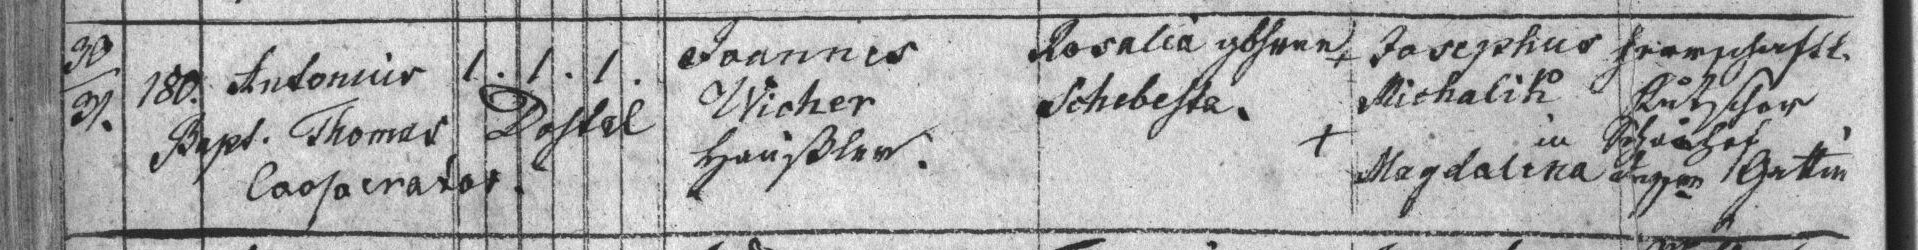 30/31. 180. Antonius 1. 1. 1. Joannes Rosalia gebohrne + Josephus herrschaftl.
Bapt. Thomas Dostal Wicher Schebesta. Michalik Kutscher
Cooperator. Häußler. + in Schönhof
Magdalena dessen Gattin